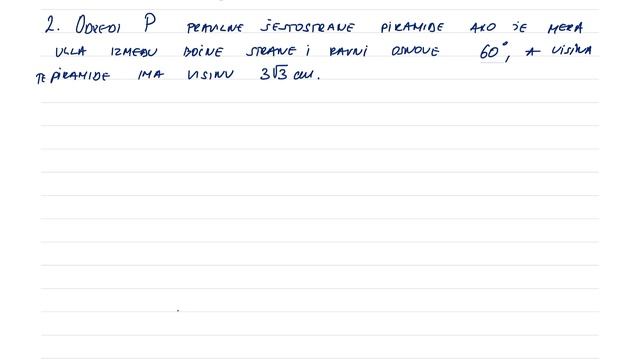 2. ODREDI P PRAVILNE ŠESTOSTRANE PIRAMIDE AKO JE MERA
UGLA IZMEĐU BOČNE STRANE I RAVNI OSNOVE 60°, A VISINA
TE PIRAMIDE IMA VISINU 3√3 cm.